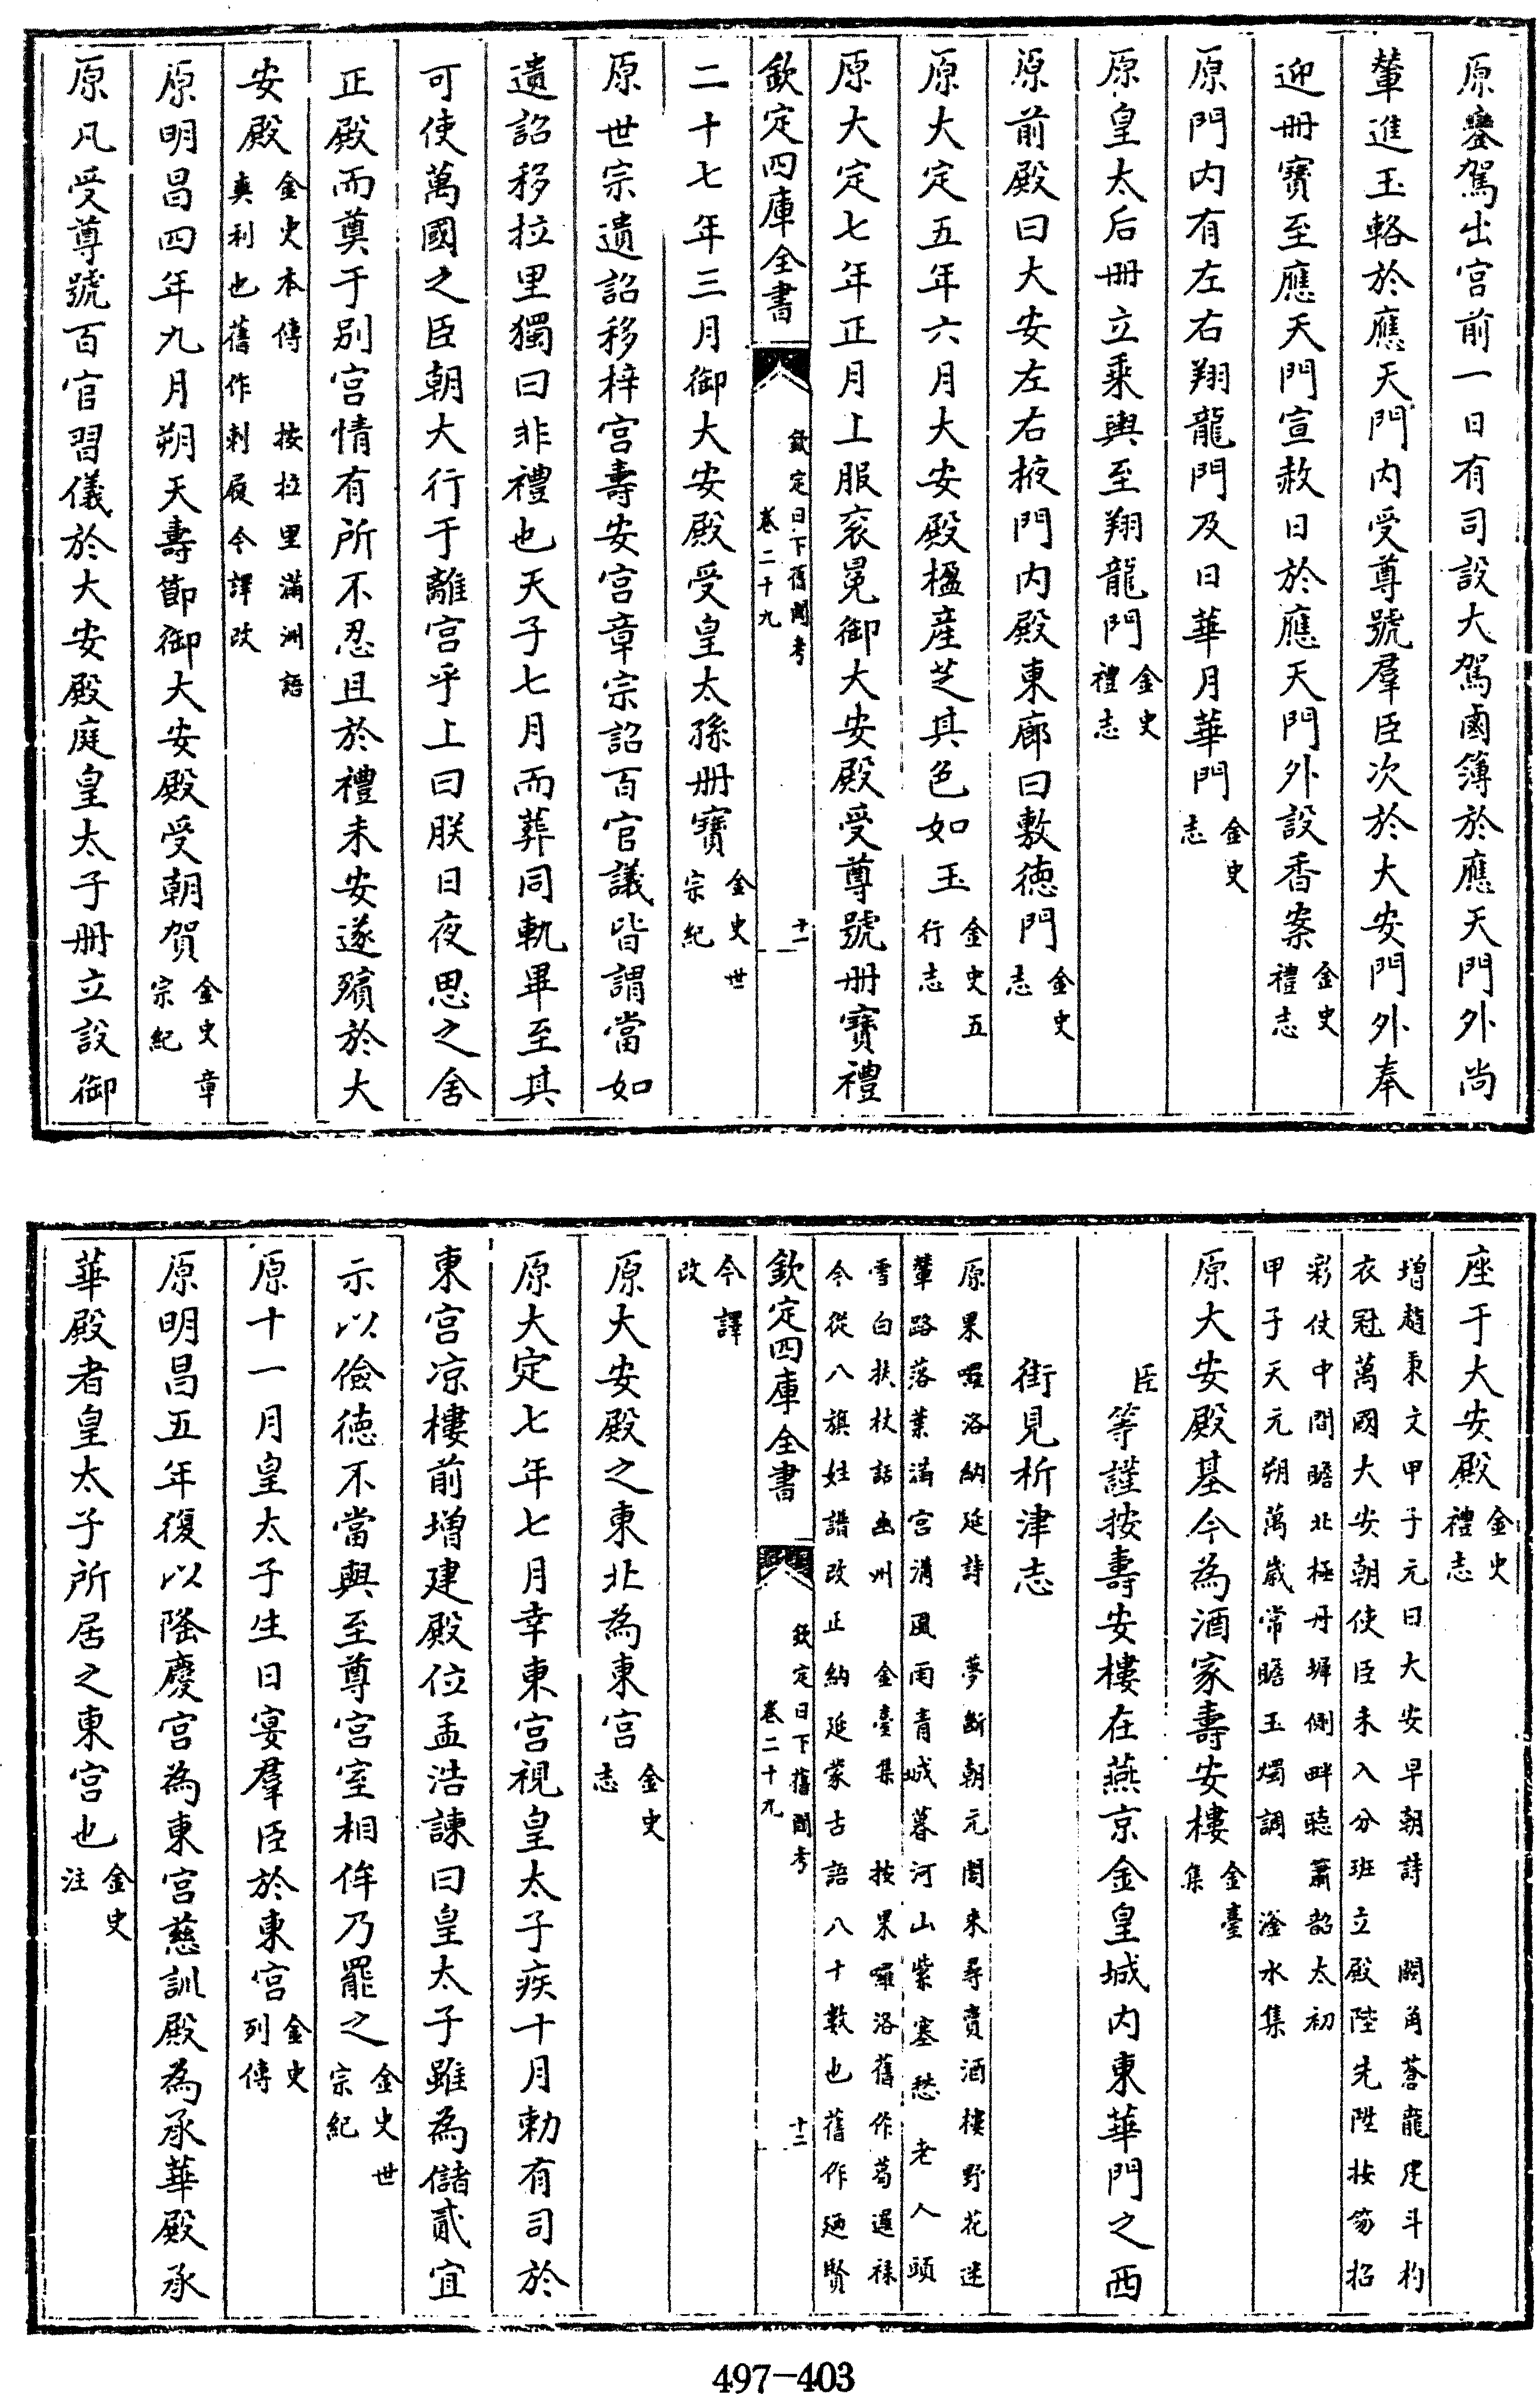 原鑾駕出宫前一日有司設大駕鹵簿於應天門外尚
輦進玉輅於應天門内受尊號羣臣次於大安門外奉
迎冊寶至應天門宣赦日於應天門外設香案金史禮志
原門内有左右翔龍門及日華月華門金史志
原皇太后冊立乘輿至翔龍門金史禮志
原前殿曰大安左右掖門内殿東廊曰敷徳門金史志
原大定五年六月大安殿楹産芝其色如玉金史五行志
原大定七年正月上服衮冕御大安殿受尊號冊寶禮
欽定四庫全書 欽定日下舊聞考 卷二十九 十一
二十七年三月御大安殿受皇太孫冊寶金史世宗紀
原世宗遺詔移梓宫壽安宫章宗詔百官議皆謂當如
遺詔移拉里獨曰非禮也天子七月而葬同軌畢至其
可使萬國之臣朝大行于離宫乎上曰朕日夜思之舍
正殿而奠于别宫情有所不忍且於禮未安遂殯於大
安殿金史本傳 按拉里滿洲語爽利也舊作剌履今譯改
原明昌四年九月朔天壽節御大安殿受朝賀金史章宗紀
原凡受尊號百官習儀於大安殿庭皇太子冊立設御
座于大安殿金史禮志
增趙秉文甲子元日大安早朝詩 闕角蒼龍建斗杓
衣冠萬國大安朝使臣未入分班立殿陛先陞按笏招
彩仗中間瞻北極丹墀側畔聽簫韶太初
甲子天元朔萬歲常瞻玉燭調 滏水集
原大安殿基今為酒家壽安樓金臺集
臣等謹按壽安樓在燕京金皇城内東華門之西
街見析津志
原果囉洛納延詩 夢斷朝元閣來尋賣酒樓野花迷
輦路落葉滿宫溝風雨青城暮河山紫塞愁老人頭
雪白扶杖話幽州 金臺集 按果囉洛舊作葛邏禄
今從八旗姓譜改正納延蒙古語八十數也舊作廼賢
欽定四庫全書 欽定日下舊聞考 卷二十九 十二
今譯改
原大安殿之東北為東宫金史志
原大定七年七月幸東宫視皇太子疾十月勅有司於
東宫凉樓前增建殿位孟浩諫曰皇太子雖為儲貳宜
示以儉徳不當與至尊宫室相侔乃罷之金史世宗紀
原十一月皇太子生日宴羣臣於東宫金史列傳
原明昌五年復以隆慶宫為東宫慈訓殿為承華殿承
華殿者皇太子所居之東宫也金史注
497-403